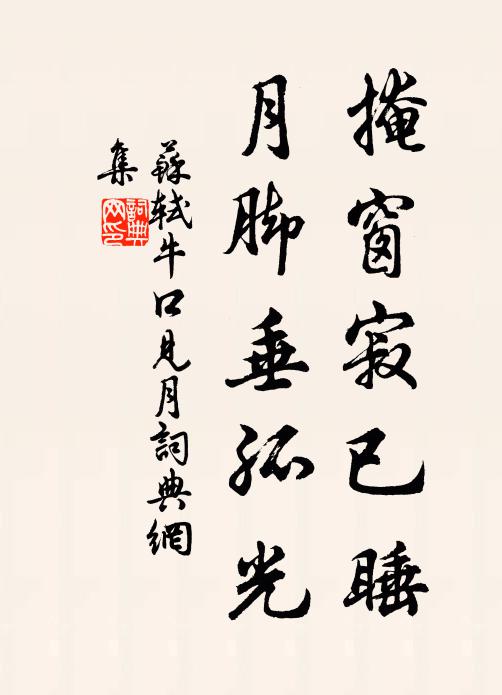 掩窗寂已睡
月脚垂孤光
蘇軾牛口見月詞典網
集
詞典網印